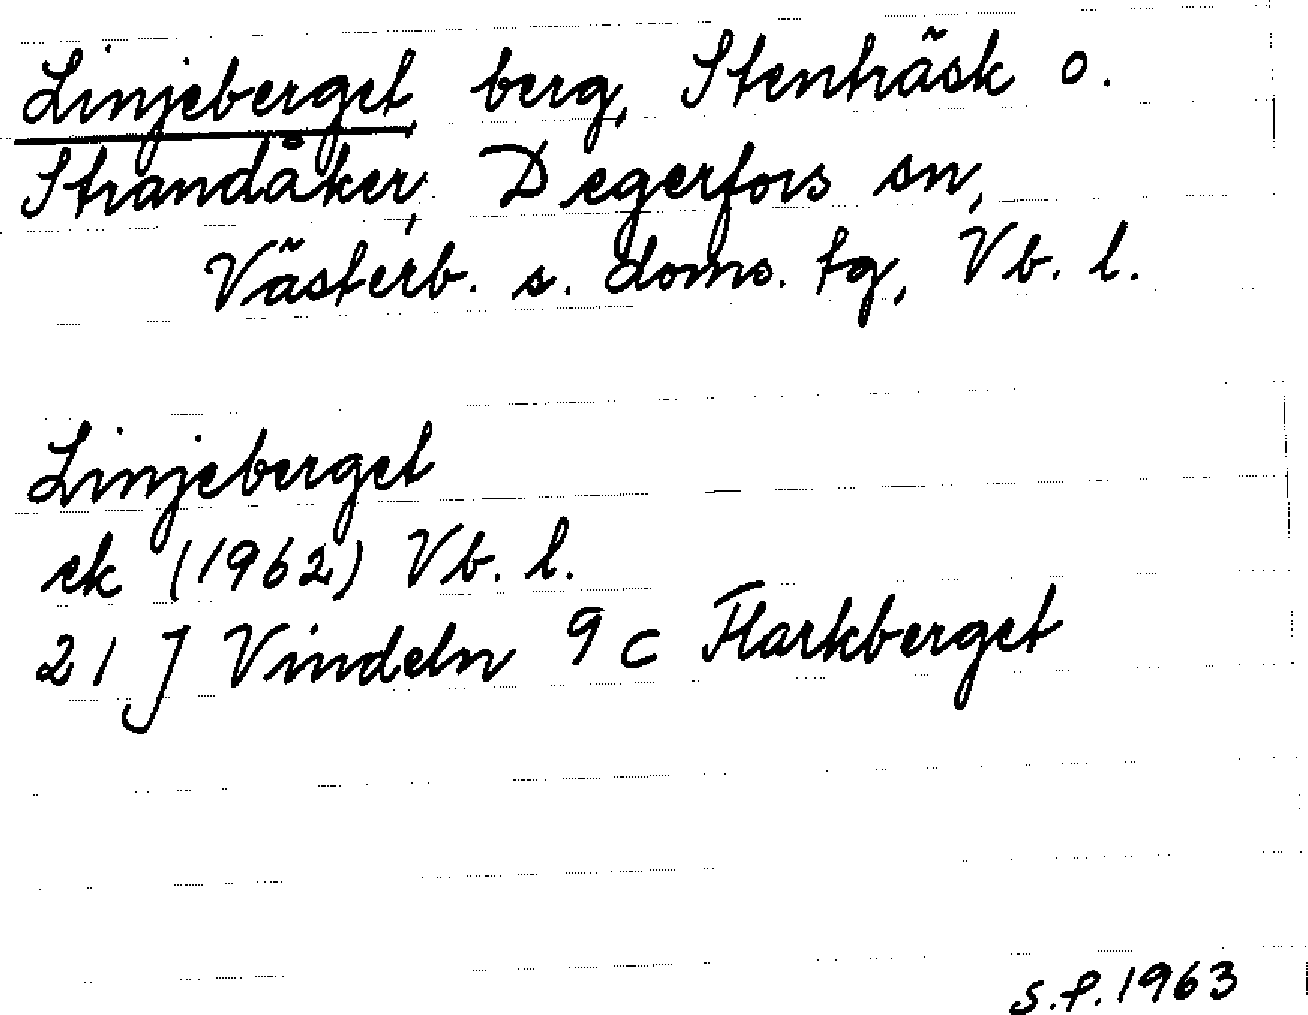 Linjeberget, berg, Stenträsk o.
Strandåker, Degerfors sn,
Västerb. s. doms. tg, Vb. l.
Linjeberget
ek (1962) Vb. l.
21 J Vindeln 9 c Flarkberget
S.f. 1963